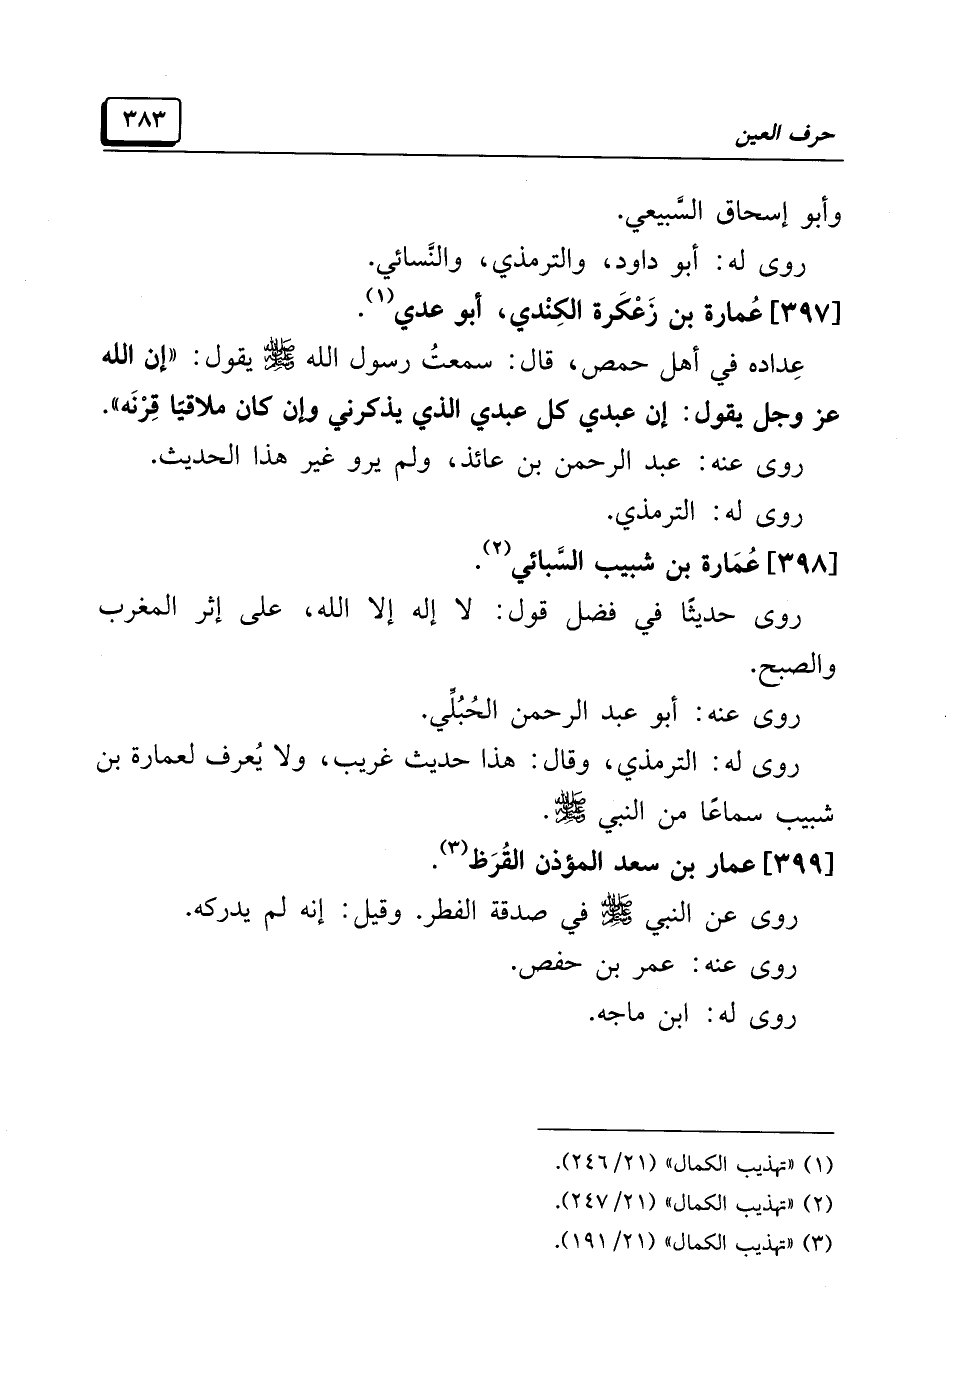 حرف العين
٣٨٣
وأبو إسحاق السَّبيعي.
روى له: أبو داود، والترمذي، والنَّسائي.
[٣٩٧] عُمارة بن زَعْكَرة الكِنْدي، أبو عدي(١).
عِداده في أهل حمص، قال: سمعتُ رسول الله ﷺ يقول: «إن الله
عز وجل يقول: إن عبدي كل عبدي الذي يذكرني وإن كان ملاقيًا قِرْنَه».
روى عنه: عبد الرحمن بن عائذ، ولم يرو غير هذا الحديث.
روى له: الترمذي.
[٣٩٨] عُمَارة بن شبيب السَّبائي(٢).
روى حديثًا في فضل قول: لا إله إلا الله، على إثر المغرب
والصبح.
روى عنه: أبو عبد الرحمن الحُبُلِّي.
روى له: الترمذي، وقال: هذا حديث غريب، ولا يُعرف لعمارة بن
شبيب سماعًا من النبي ﷺ.
[٣٩٩] عمار بن سعد المؤذن القُرَظ(٣).
روى عن النبي ﷺ في صدقة الفطر. وقيل: إنه لم يدركه.
روى عنه: عمر بن حفص.
روى له: ابن ماجه.
(١) «تهذيب الكمال» (٢١/ ٢٤٦).
(٢) «تهذيب الكمال» (٢١/ ٢٤٧).
(٣) «تهذيب الكمال» (٢١/ ١٩١).